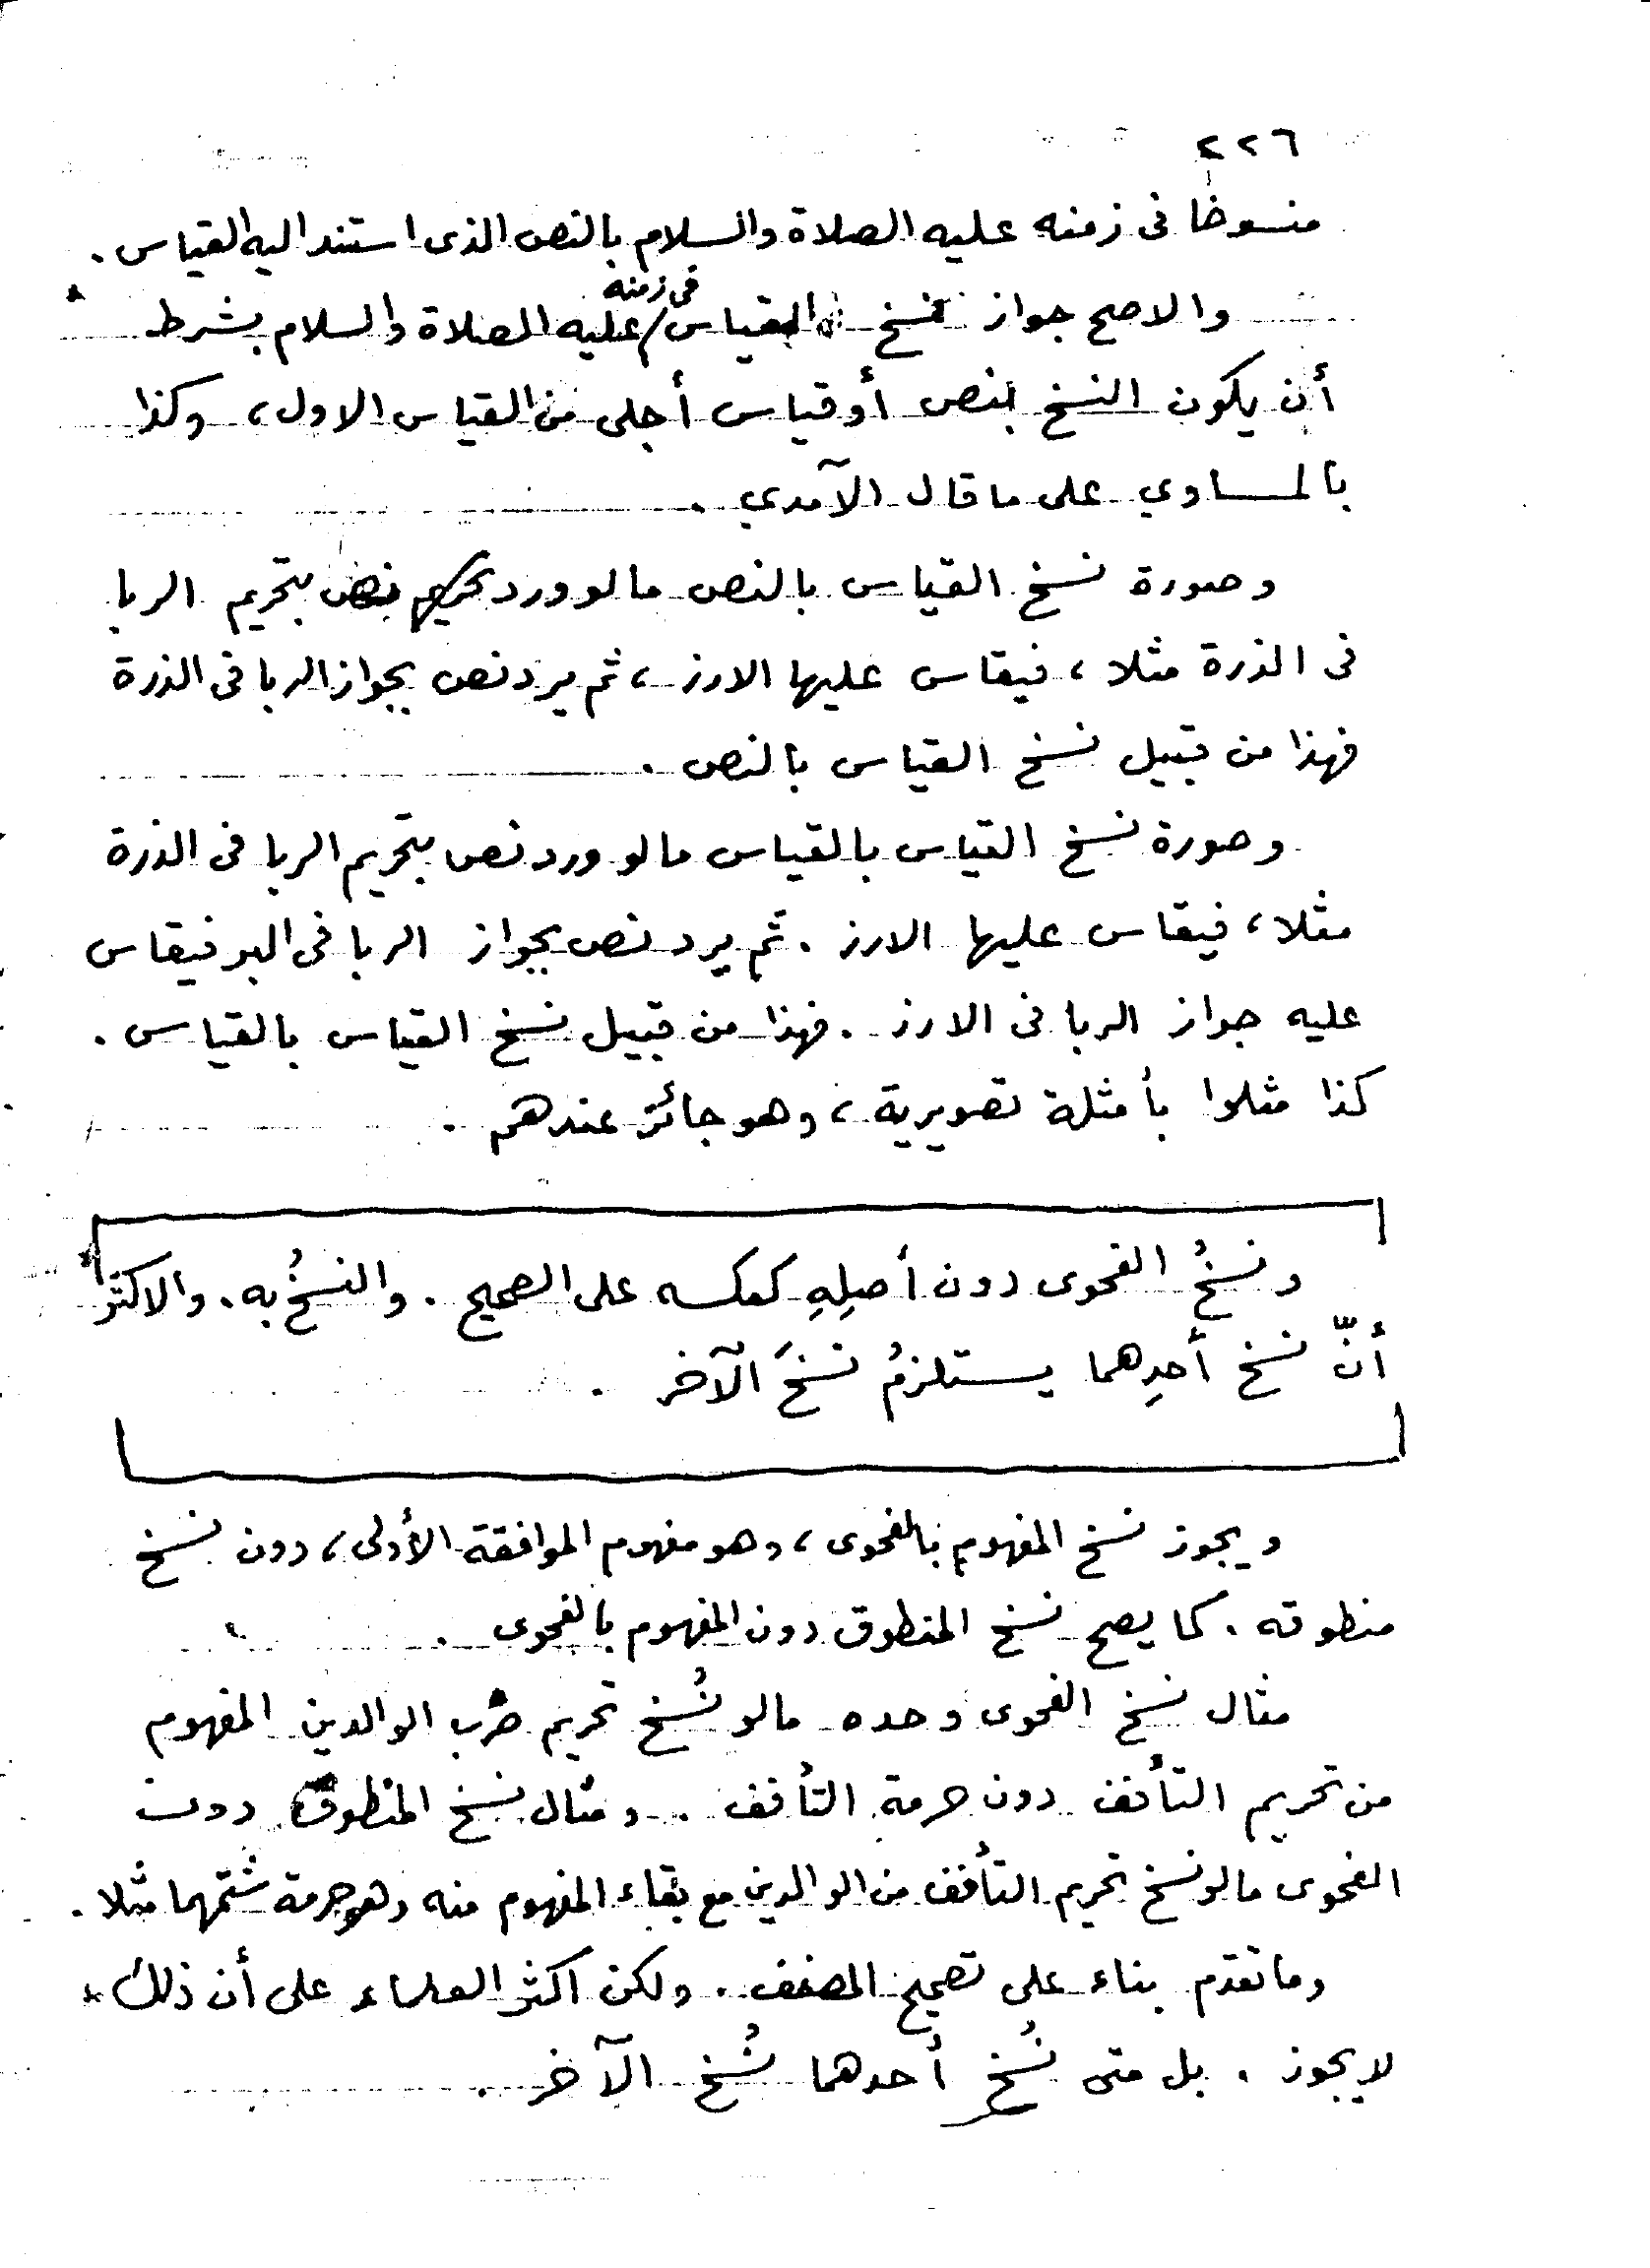 ٢٢٦
منسوخا فى زمنه عليه الصلاة والسلام بالنص الذى استند اليه القياس .
والاصح جواز نسخ القياس فى زمنه عليه الصلاة والسلام بشرط
أن يكون النسخ بنص أو قياس أجلى من القياس الاول ، وكذا
بالمساوي على ما قال الآمدي .
وصورة نسخ القياس بالنص ما لو ورد نص بتحريم الربا
فى الذرة مثلا ، فيقاس عليها الارز ، ثم يرد نص بجواز الربا فى الذرة
فهذا من قبيل نسخ القياس بالنص .
وصورة نسخ القياس بالقياس ما لو ورد نص بتحريم الربا فى الذرة
مثلا ، فيقاس عليها الارز . ثم يرد نص بجواز الربا فى البر فيقاس
عليه جواز الربا فى الارز . فهذا من قبيل نسخ القياس بالقياس .
كذا مثلوا بأمثلة تصويرية ، وهو جائز عندهم .
ونسخُ الفحوى دون أصلِهِ كعكسه على الصحيح . والنسخُ به . والاكثر
أنّ نسخ أحدِهما يستلزمُ نسخَ الآخر .
ويجوز نسخ المفهوم بالفحوى ، وهو مفهوم الموافقة الأولى ، دون نسخ
منطوقه . كما يصح نسخ المنطوق دون المفهوم بالفحوى .
مثال نسخ الفحوى وحده ما لو نُسخ تحريم ضرب الوالدين المفهوم
من تحريم التأفف دون حرمة التأفف . ومثال نسخ المنطوق دون
الفحوى ما لو نسخ تحريم التأفف من الوالدين مع بقاء المفهوم منه وهو حرمة شتمهما مثلا .
وما تقدم بناء على تصحيح المصنف . ولكن اكثر العلماء على أن ذلك
لا يجوز . بل متى نُسخ أحدهما نُسخ الآخر .